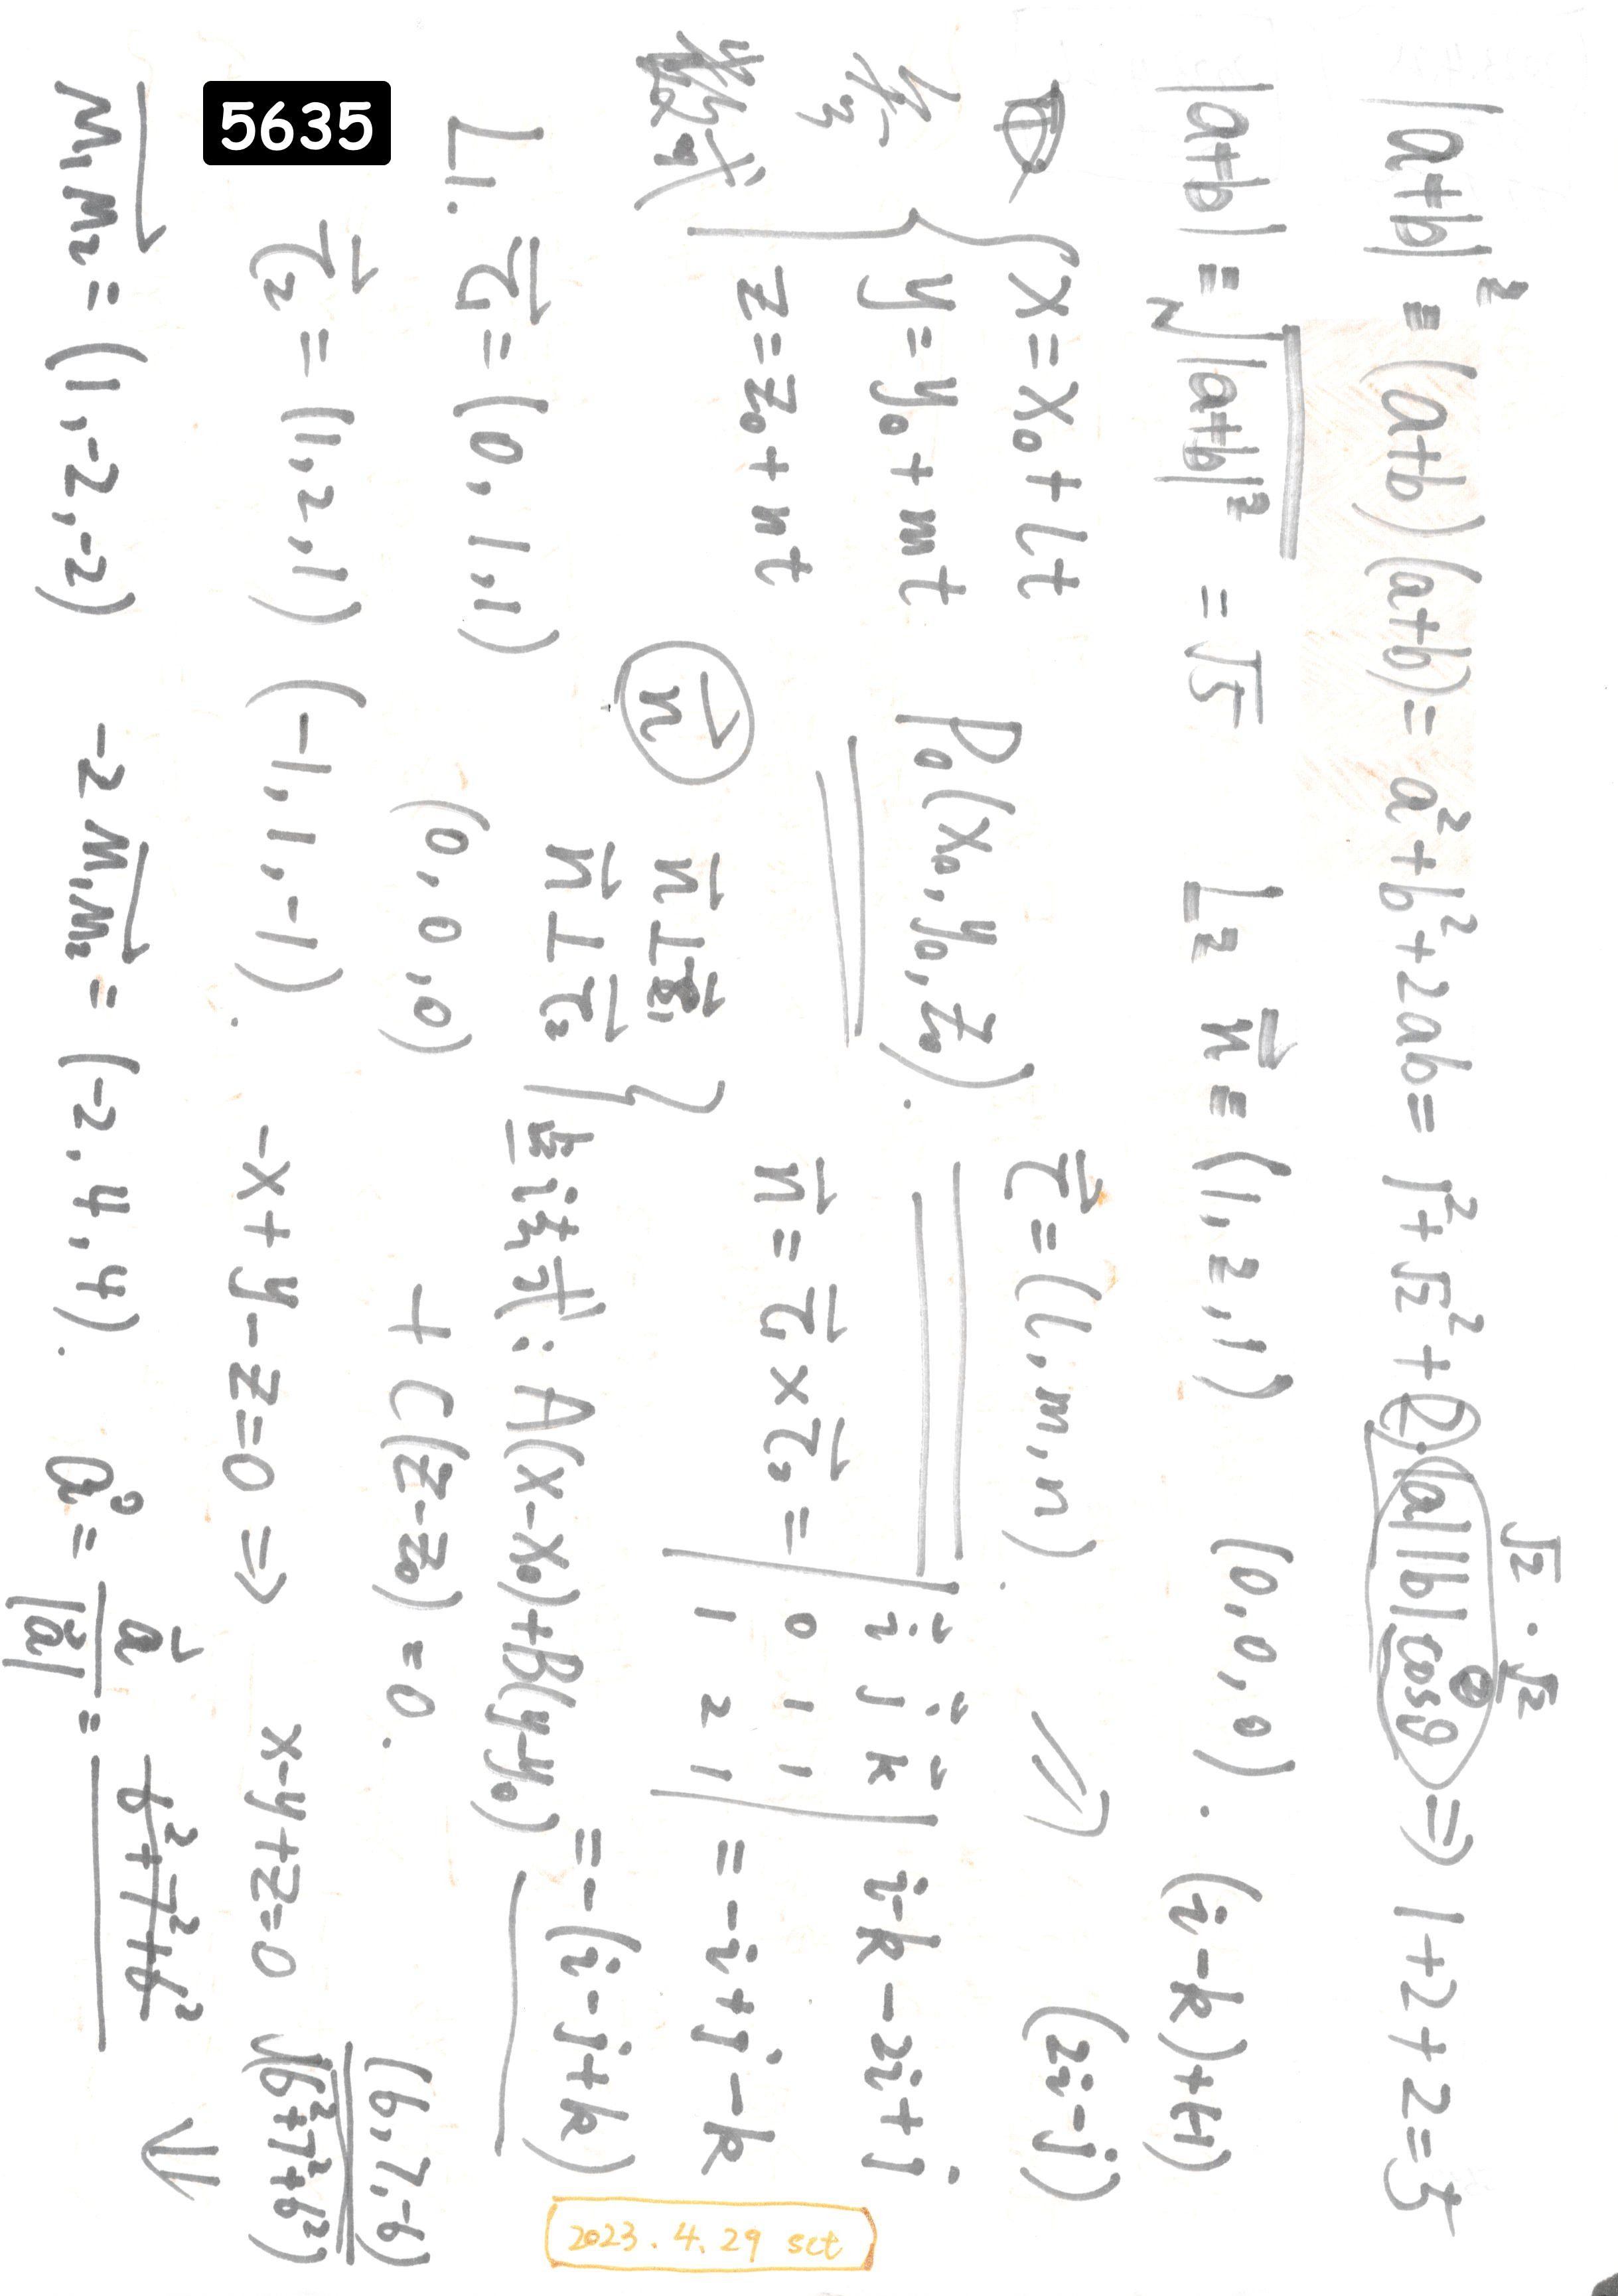 |a+b|² = (a+b)(a+b) = a²+b²+2ab = 1²+√2²+2·|a||b|cosθ ⇒ 1+2+2=5
√2·√2/2
|a+b| = √|a+b|² = √5
L₂ n⃗ = (1,2,1) (0,0,0). (i-k)+(-1)
(2i-j)
① { x=x₀+lt
y=y₀+mt
z=z₀+nt
参数式
P₀(x₀,y₀,z₀).
τ⃗=(l,m,n).
n⃗
n⃗⊥τ⃗₁
n⃗⊥τ⃗₂
n⃗ = τ⃗₁×τ⃗₂ = | i⃗ j⃗ k⃗
0 1 1
1 2 1 |
i-k-2i+j
= -i+j-k
= -(i-j+k)
L₁. τ⃗₁ = (0,1,1)
(0,0,0)
点法式: A(x-x₀)+B(y-y₀)
+C(z-z₀)=0.
τ⃗₂ = (1,2,1) (-1,1,-1). -x+y-z=0 ⇒ x-y+z=0
(6,7,-6)
√(6²+7²+6²)
M₁M₂ = (1,-2,-2) -2M₁M₂ = (-2,4,4). a⁰ = a⃗/|a⃗| =
6²+7²+6²
⇓
5635
2023.4.29 sct